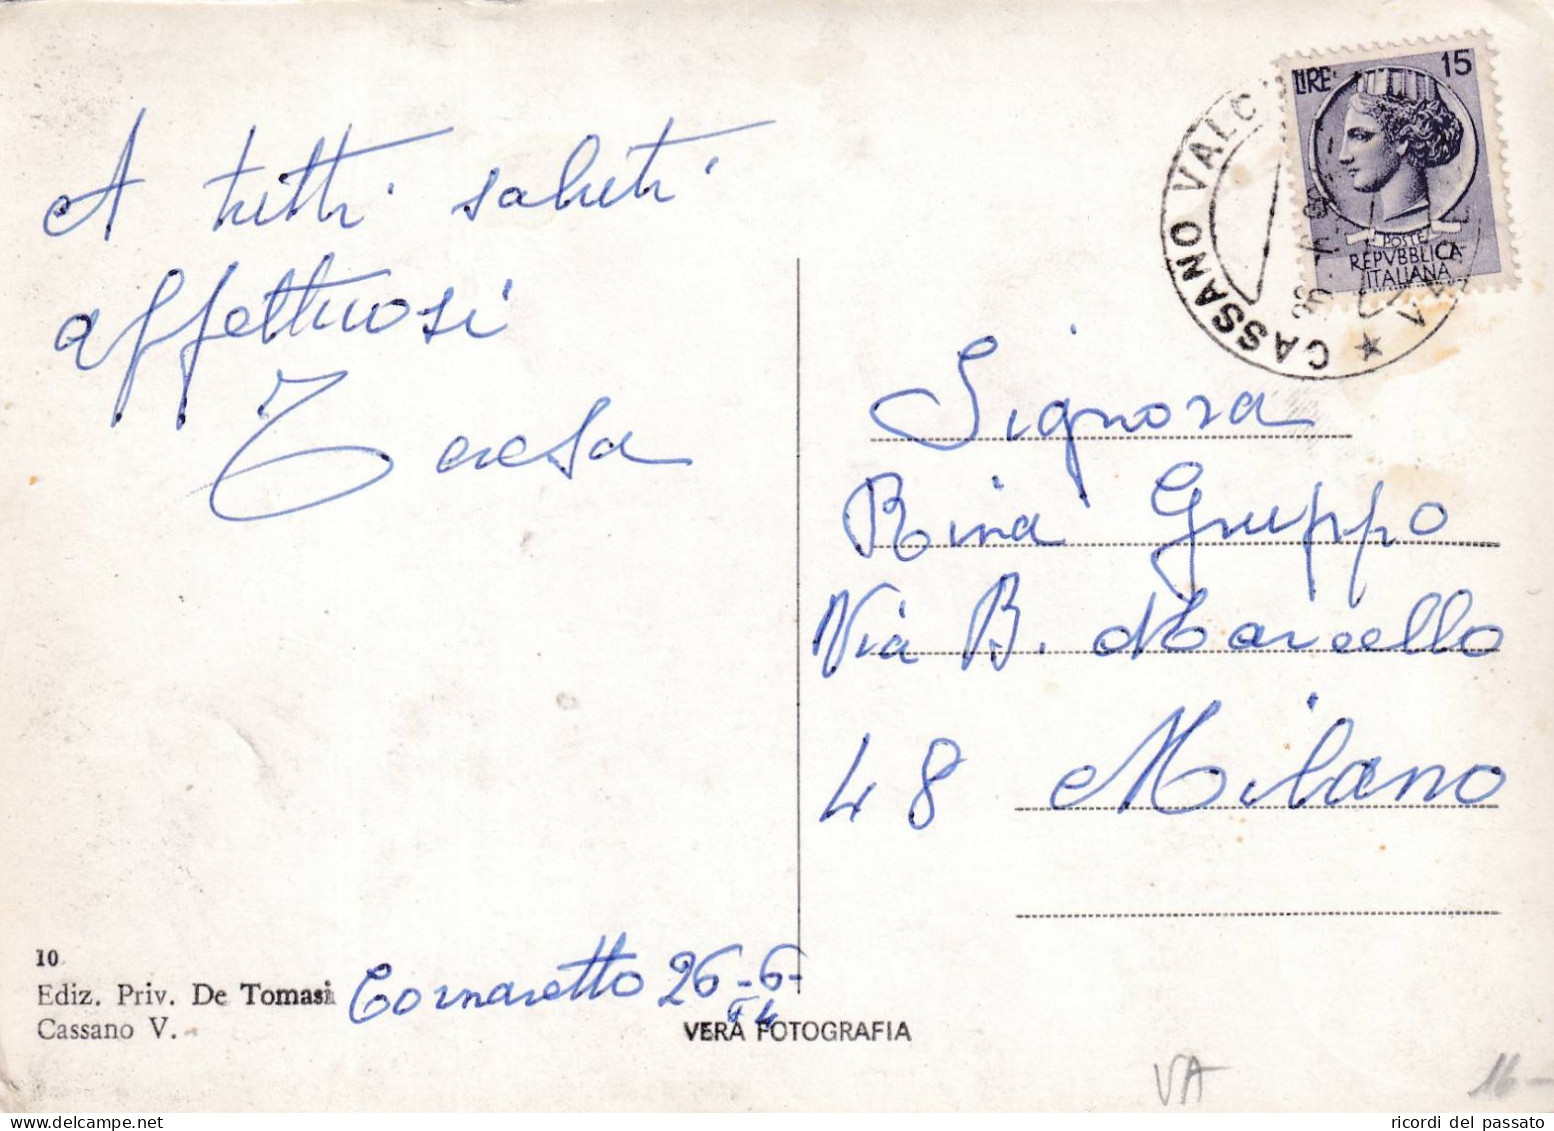 A tutti saluti
affettuosi
Teresa
LIRE 15
POSTE
REPVBBLICA
ITALIANA
CASSANO VALC
Signora
Rina Gruppo
Via B. Marcello
48 Milano
10
Ediz. Priv. De Tomasi
Cassano V.
Cornaretto 26-6-
64
VERA FOTOGRAFIA
VA
16-
ricordi del passato